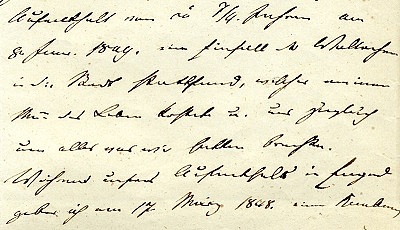 Aufenthalt von Jahren am
8n 1849. ein Einfall der Wallachen
in die Stadt stattfand, welcher meinem
Mann das Leben kostete u. uns zugleich
um alles was wir hatten brachte.
Während unsers Aufenthalts in Enyed
gebar ich am 17 März 1848. einen Knaben